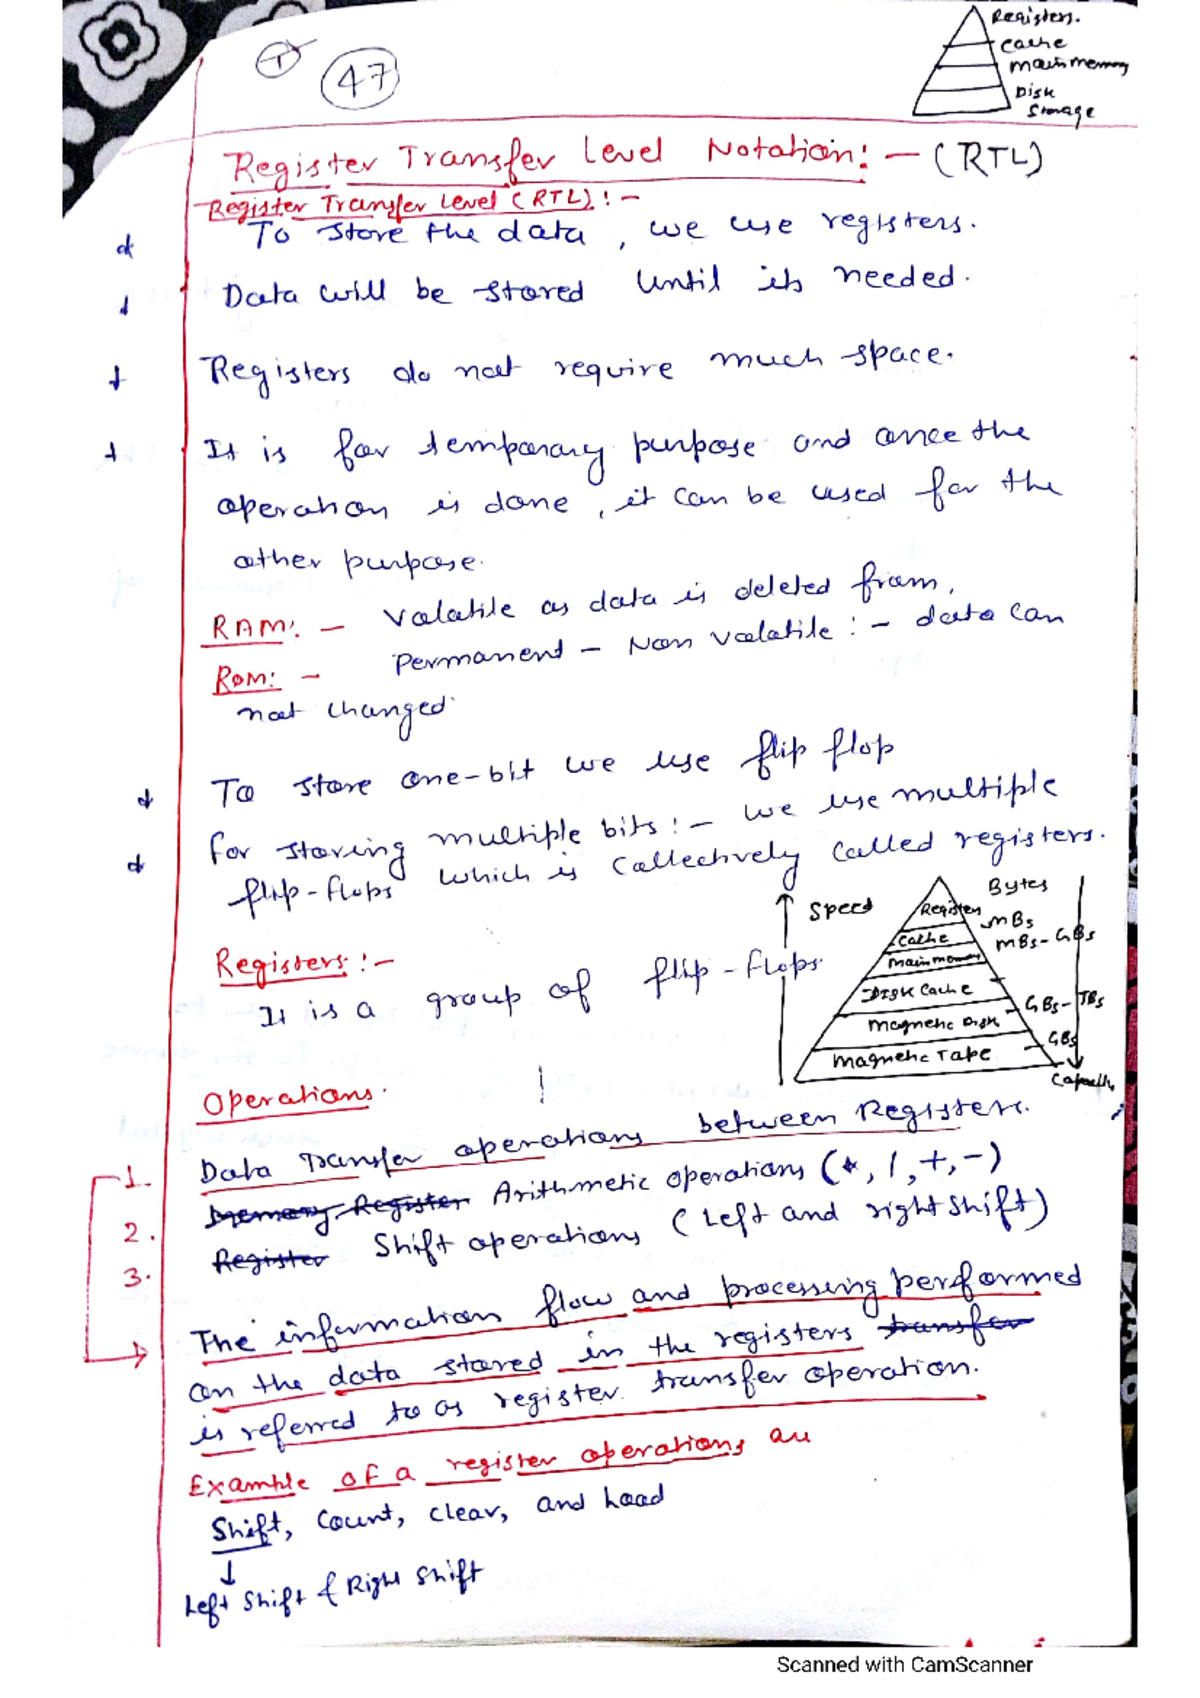 T
47
Registers.
Cache
main memory
Disk
Storage
Register Transfer Level Notation: - (RTL)
Register Transfer Level (RTL): -
To store the data, we use registers.
Data will be stored until its needed.
Registers do not require much space.
It is for temporary purpose and once the
operation is done, it can be used for the
other purpose.
RAM: - Volatile as data is deleted from,
Rom: - Permanent - Non volatile: - data can
not changed
To store one-bit we use flip flop
for storing multiple bits: - we use multiple
flip-flops which is collectively called registers.
Registers: -
It is a group of flip-flops.
Speed
Register
Cache
main memory
Disk cache
magnetic Disk
magnetic Tape
Bytes
MBs
MBs-GBs
GBs-TBs
GBs
Operations.
1. Data Transfer operations between Registers.
2. Memory Register Arithmetic operations (*, /, +, -)
3. Register Shift operations (Left and right shift)
The information flow and processing performed
on the data stored in the registers transfer
is referred to as register transfer operation.
Example of a register operations are
Shift, Count, clear, and Load
Left shift & Right shift
Scanned with CamScanner